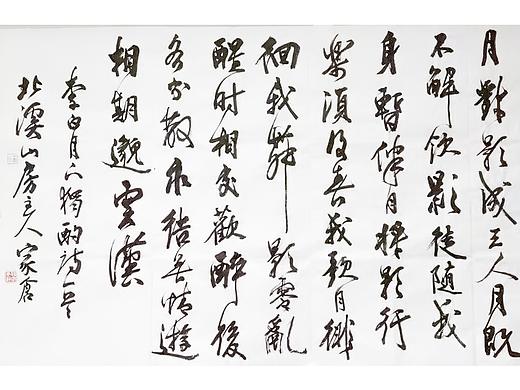 月對影成三人月既
不解飲影徒隨我
身暫伴月將影行
樂須及春我歌月徘
徊我舞影零亂
醒时相交歡醉後
各分散永結無情遊
相期邈雲漢
李白月下獨酌詩一首
北溪山房主人家